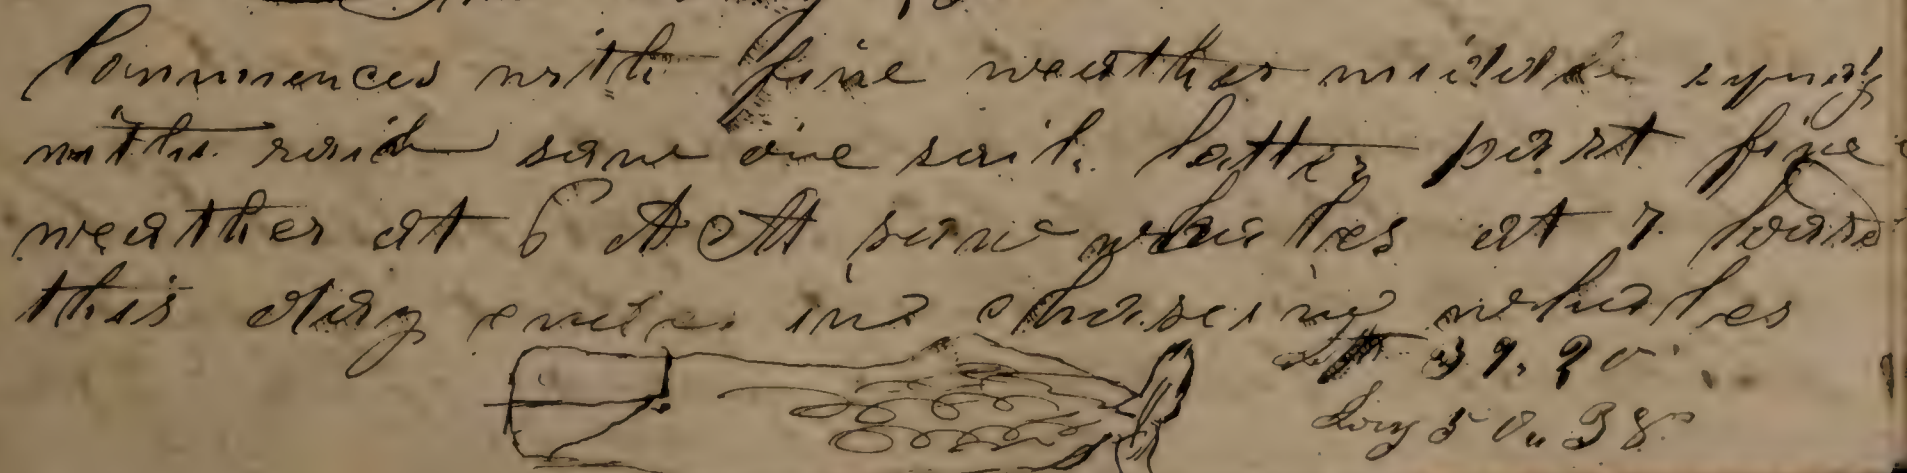 Commences with fine weather middle squaly
with rain saw one sail. latter part fine
weather at 6 A M saw whales at 7 lowrd
this day ends in chasing whales
Latt 39. 20
Long 50.. 38